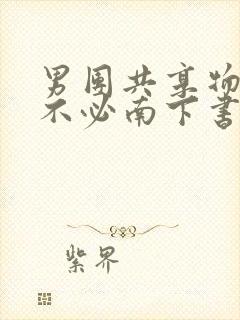 男团共享物
不必南下書
紫界